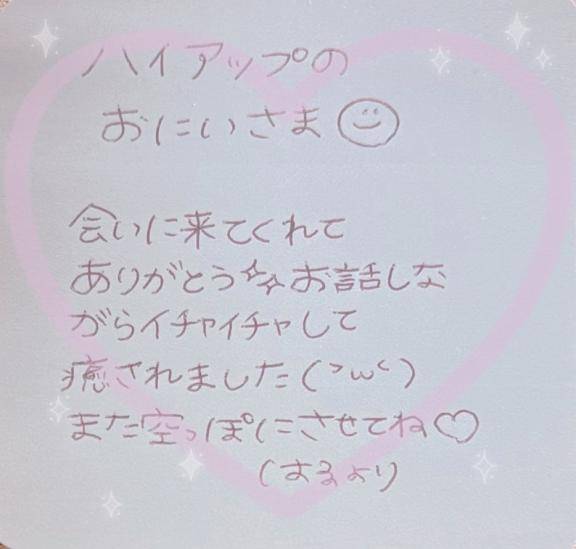 ハイアップの
おにいさま
会いに来てくれて
ありがとう✨お話しな
がらイチャイチャして
癒されました(>ω<)
また空っぽにさせてね♡
(はるより)